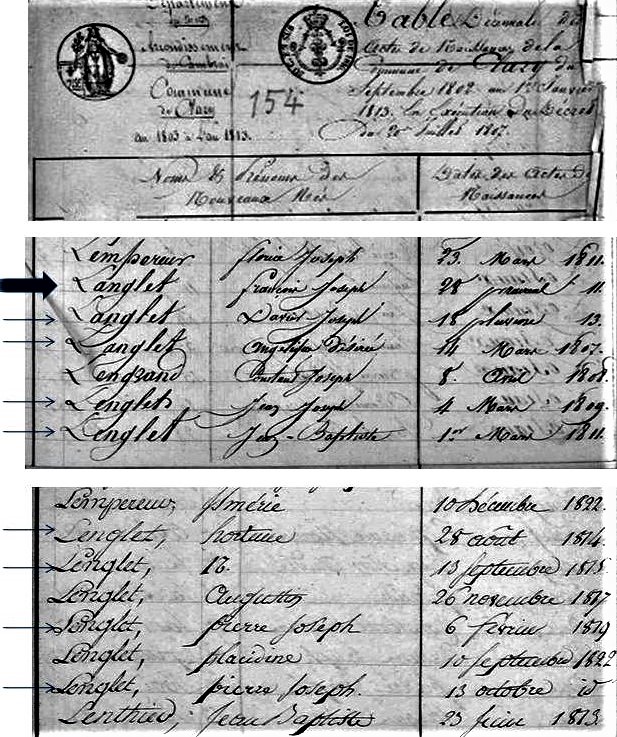 Département
Arrondissement
de Cambrai
Commune
de
an 1803 à l'an 1813.
154
Table Décennale des
Actes de Naissances de la
Commune de
Septembre 1802 au 1er Janvier
1813. En Exécution du Décret
Du 20 Juillet 1807.
Noms & Prénoms des
Nouveaux Nés
Dates des Actes de
Naissances
Lempereur Joseph 23. Mars 1811.
Langlet Joseph 28 prairial 11.
Langlet Xavier Joseph 18 pluviose 13.
Langlet Angelique Désirée 14 Mars 1807.
Lengrand Constant Joseph 8. Avril 1808.
Lenglet Jean Joseph 4 Mars 1809.
Lenglet Jean-Baptiste 1er Mars 1811.
Lempereur, 10 Décembre 1822.
Lenglet, hortense 28 août 1814.
Lenglet, N. 13 Septembre 1815
Lenglet, Augustin 26 novembre 1817
Lenglet, pierre Joseph 6 février 1819
Lenglet, placidine 10 Septembre 1822
Lenglet, pierre Joseph. 13 octobre id
Jean Baptiste 23 1813.